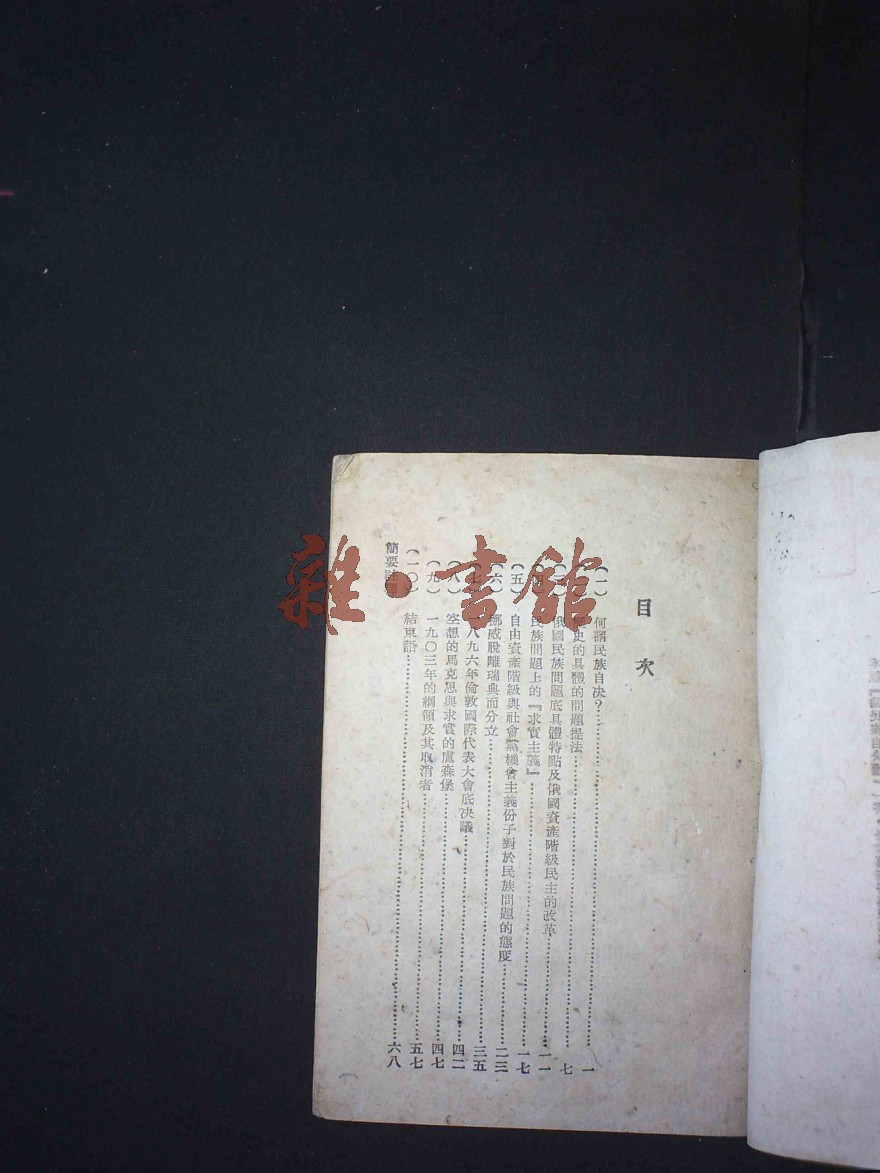 目次
（一） 何謂民族自決？……一
歷史的具體的問題提法……七
（三） 俄國民族問題底具體特點及俄國資產階級民主的改革……一一
（四） 民族問題上的『求實主義』……一七
（五） 自由資產階級與社會黨機會主義份子對於民族問題的態度……二三
（六） 挪威脫離瑞典而分立……三五
（七） 一八九六年倫敦國際代表大會底決議……四二
（八） 空想的馬克思與求實的盧森堡……四七
（九） 一九〇三年的綱領及其取消者……五七
（一〇） 結束語……六八
簡要註
雜·書館